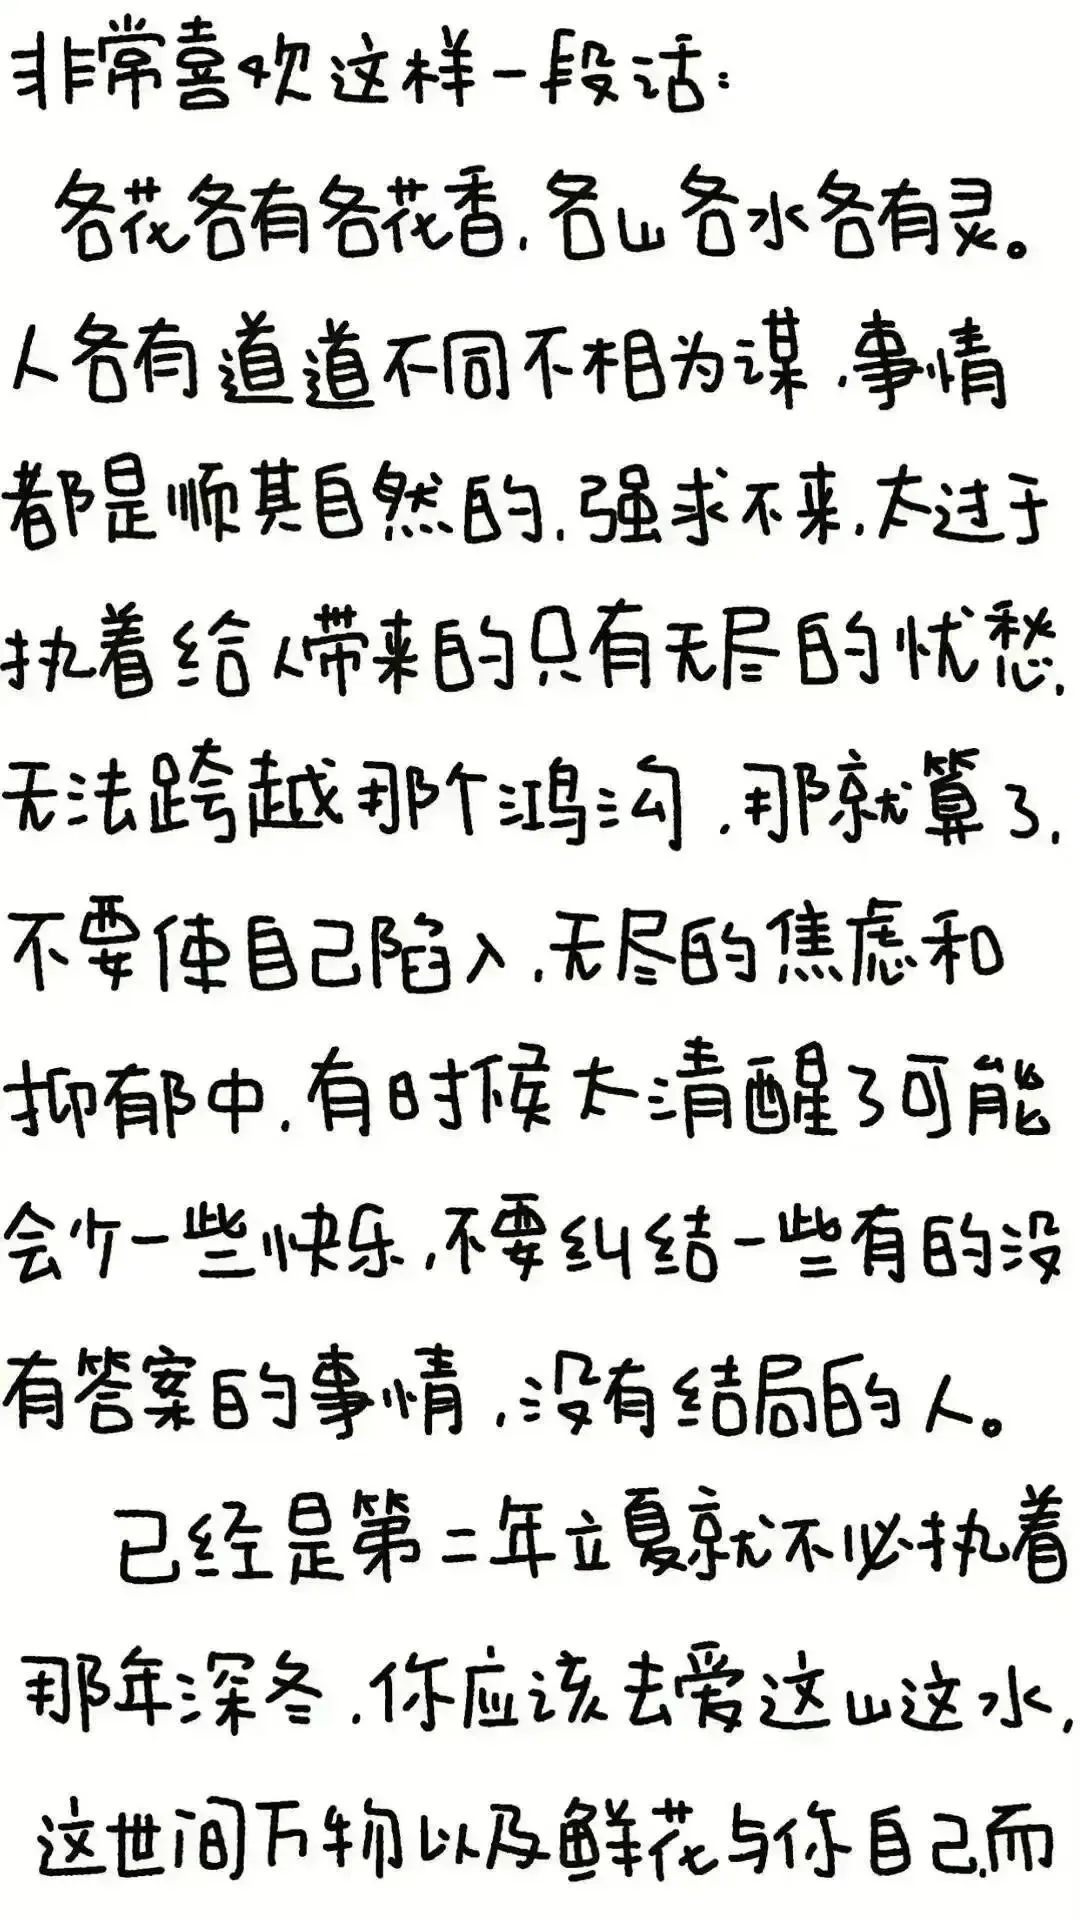 非常喜欢这样一段话:
各花各有各花香,各山各水各有灵。
人各有道道不同不相为谋,事情
都是顺其自然的,强求不来,太过于
执着给人带来的只有无尽的忧愁,
无法跨越那个鸿沟,那就算了,
不要使自己陷入,无尽的焦虑和
抑郁中,有时候太清醒了可能
会少一些快乐,不要纠结一些有的没
有答案的事情,没有结局的人。
已经是第二年立夏就不必执着
那年深冬,你应该去爱这山这水,
这世间万物以及鲜花与你自己,而